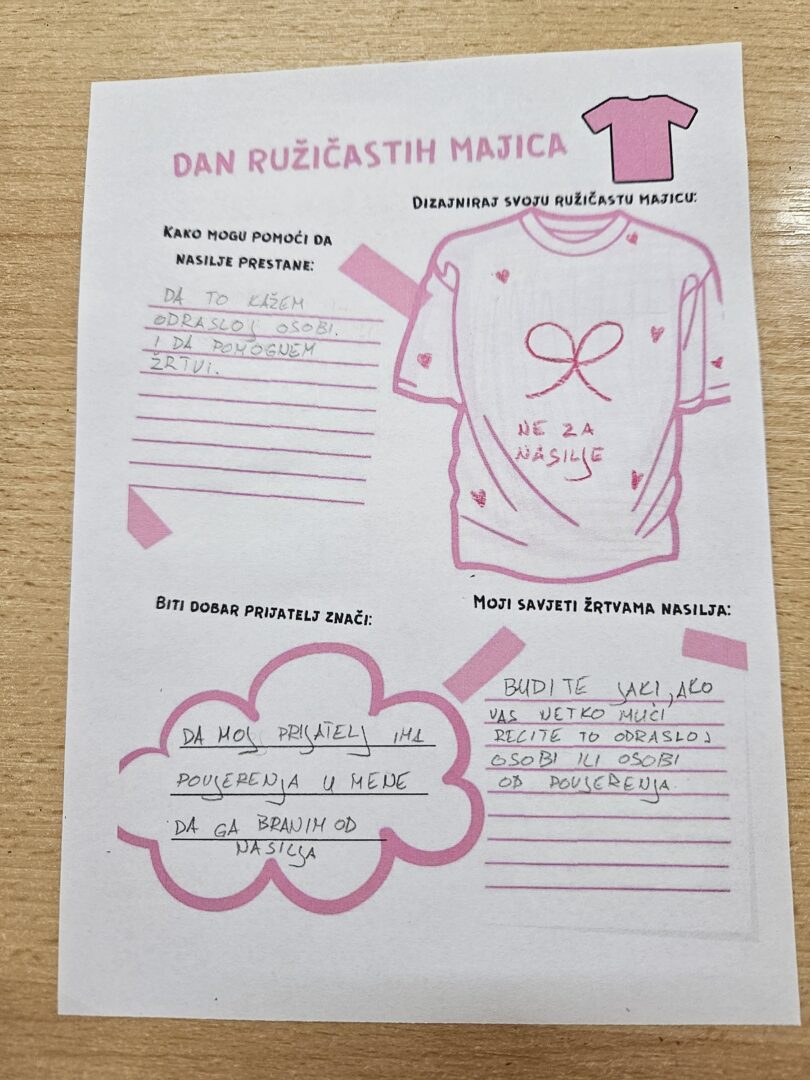 DAN RUŽIČASTIH MAJICA
DIZAJNIRAJ SVOJU RUŽIČASTU MAJICU:
KAKO MOGU POMOĆI DA
NASILJE PRESTANE:
DA TO KAŽEM
ODRASLOJ OSOBI.
I DA POMOGNEM
ŽRTVI.
NE ZA
NASILJE
BITI DOBAR PRIJATELJ ZNAČI:
DA MOJ PRIJATELJ IMA
POVJERENJA U MENE
DA GA BRANIM OD
NASILJA
MOJI SAVJETI ŽRTVAMA NASILJA:
BUDITE JAKI, AKO
VAS NETKO MUČI
RECITE TO ODRASLOJ
OSOBI ILI OSOBI
OD POVJERENJA.